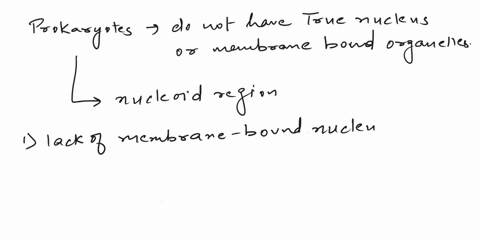 Prokaryotes → do not have True nucleus
or membrane bound organelles.
↳ nucleoid region
1) lack of membrane-bound nucleu